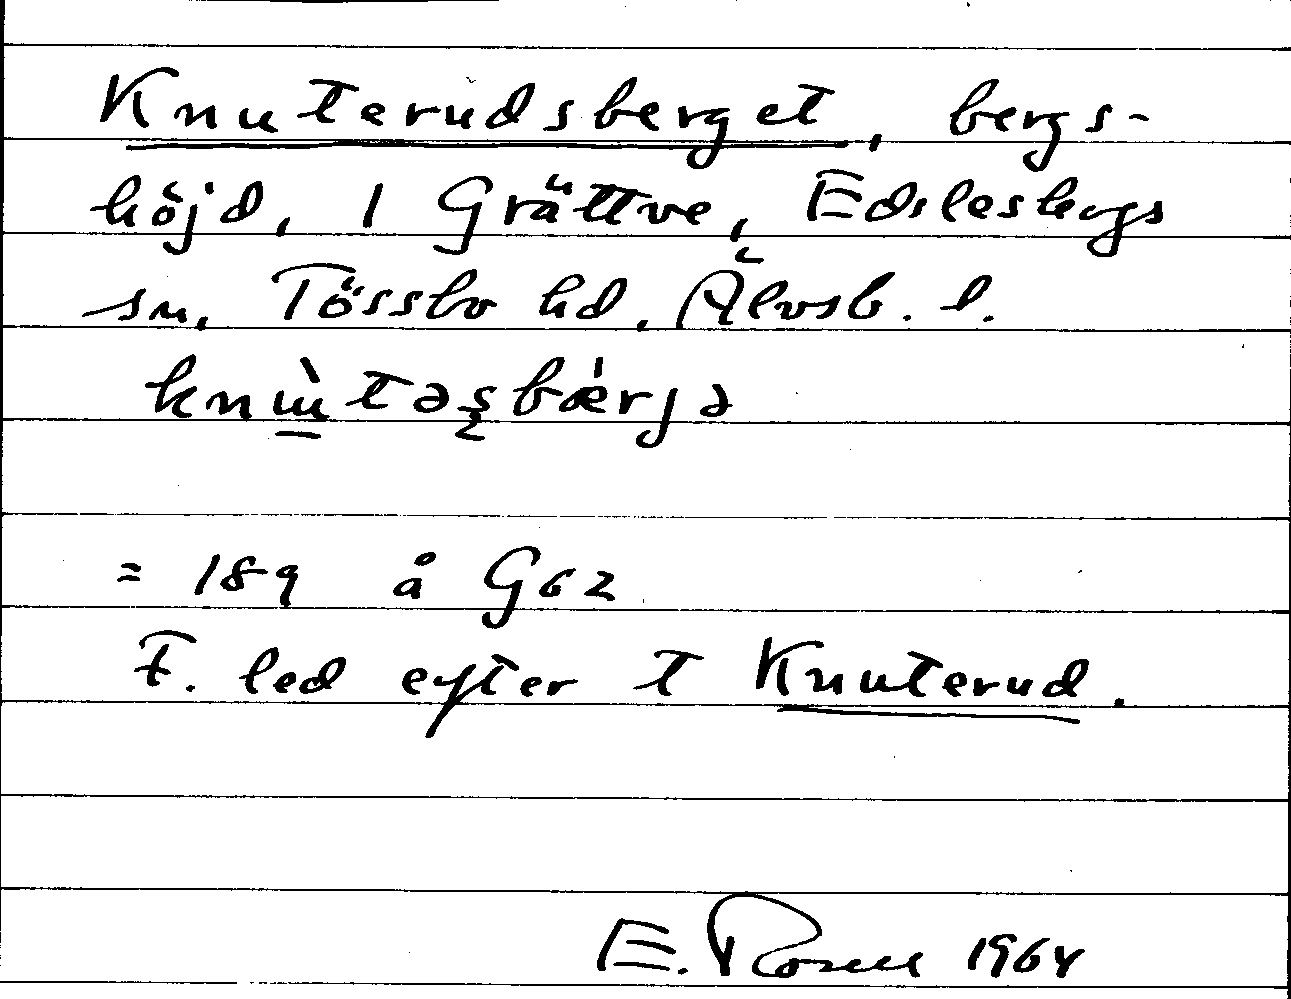 Knuterudsberget, bergs-
höjd, 1 Grättve, Edsleskogs
sn, Tössbo hd, Älvsb. l.
knùtəsbǽrjə
= 189 å G62
F. led efter t Knuterud.
E. Rosell 1964